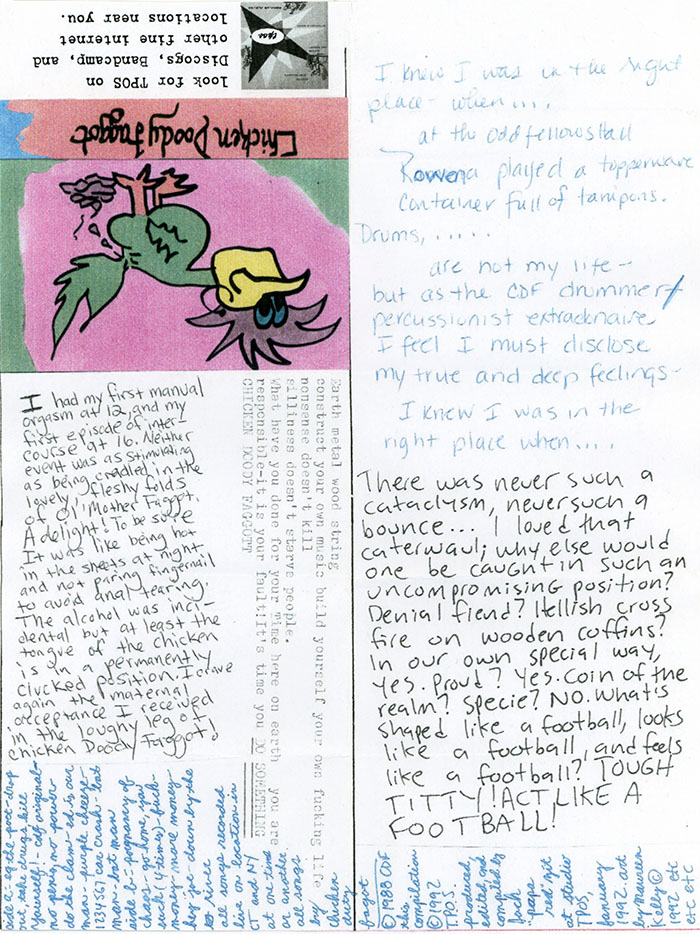 look for TPOS on
Discogs, Bandcamp, and
other fine internet
locations near you.
tpos
Chicken Doody Faggot
I had my first manual
orgasm at 12, and my
first episode of inter-
course at 16. Neither
event was as stimulating
as being cradled in the
lovely fleshy folds
of Ol' Mother Faggot.
A delight! To be sure
It was like being hot
in the sheets at night
and not paring fingernail
to avoid anal tearing.
The alcohol was inci-
dental but at least the
tongue of the chicken
is in a permanently
clucked position. I crave
again the maternal
acceptance I received
in the loughy leg of
Chicken Doody Faggot!
Earth metal wood string
construct your own music build yourself your own fucking life
nonsense doesn't kill
silliness doesn't starve people.
What have you done for your Time here on earth you are
responsible-it is your fault!It's time you DO SOMETHING
CHICKEN DOODY FAGGOTT
I knew I was in the right
place - when....
at the Oddfellows Hall
Rowena played a topperware
container full of tampons.
Drums, .....
are not my life -
but as the CDF drummer/
percussionist extraordnaire
I feel I must disclose
my true and deep feelings -
I knew I was in the
right place when....
There was never such a
cataclysm, never such a
bounce... I loved that
caterwaul; why else would
one be caught in such an
uncompromising position?
Denial fiend? Hellish cross
fire on wooden coffins?
In our own special way,
yes. Proud? Yes. Coin of the
realm? Specie? NO. What's
shaped like a football, looks
like a football, and feels
like a football? TOUGH
TITTY! ACT LIKE A
FOOTBALL!
side a - eg the poet - drop
out, take drugs, kill
yourself! - cdf original -
no penis, no power -
do the clam - ed is our
man - purple cheese -
1234567 car crash - bat
man - bat man
side b - pregnancy of
chaos - go home, you
suck (4 times) - fuck
money, more money -
hey joe - down by the
river
all songs recorded
live on location in
CT and NY
at one time
or another.
all songs
by
Chicken
duty
faggot
©1988 CDF
this
compilation
©1992
T.P.O.S.
produced,
edited, and
compiled by
fuck
"papa
red" nyt
at studio
TPOS
January
1992. art
by Maureen
Kelly ©
1992 etc
etc etc